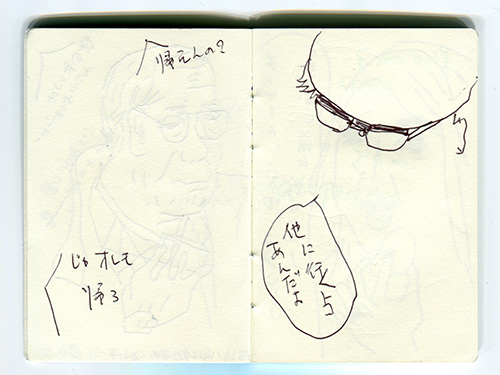 帰えんの?
じゃオレも
帰る
他に
あんだよ